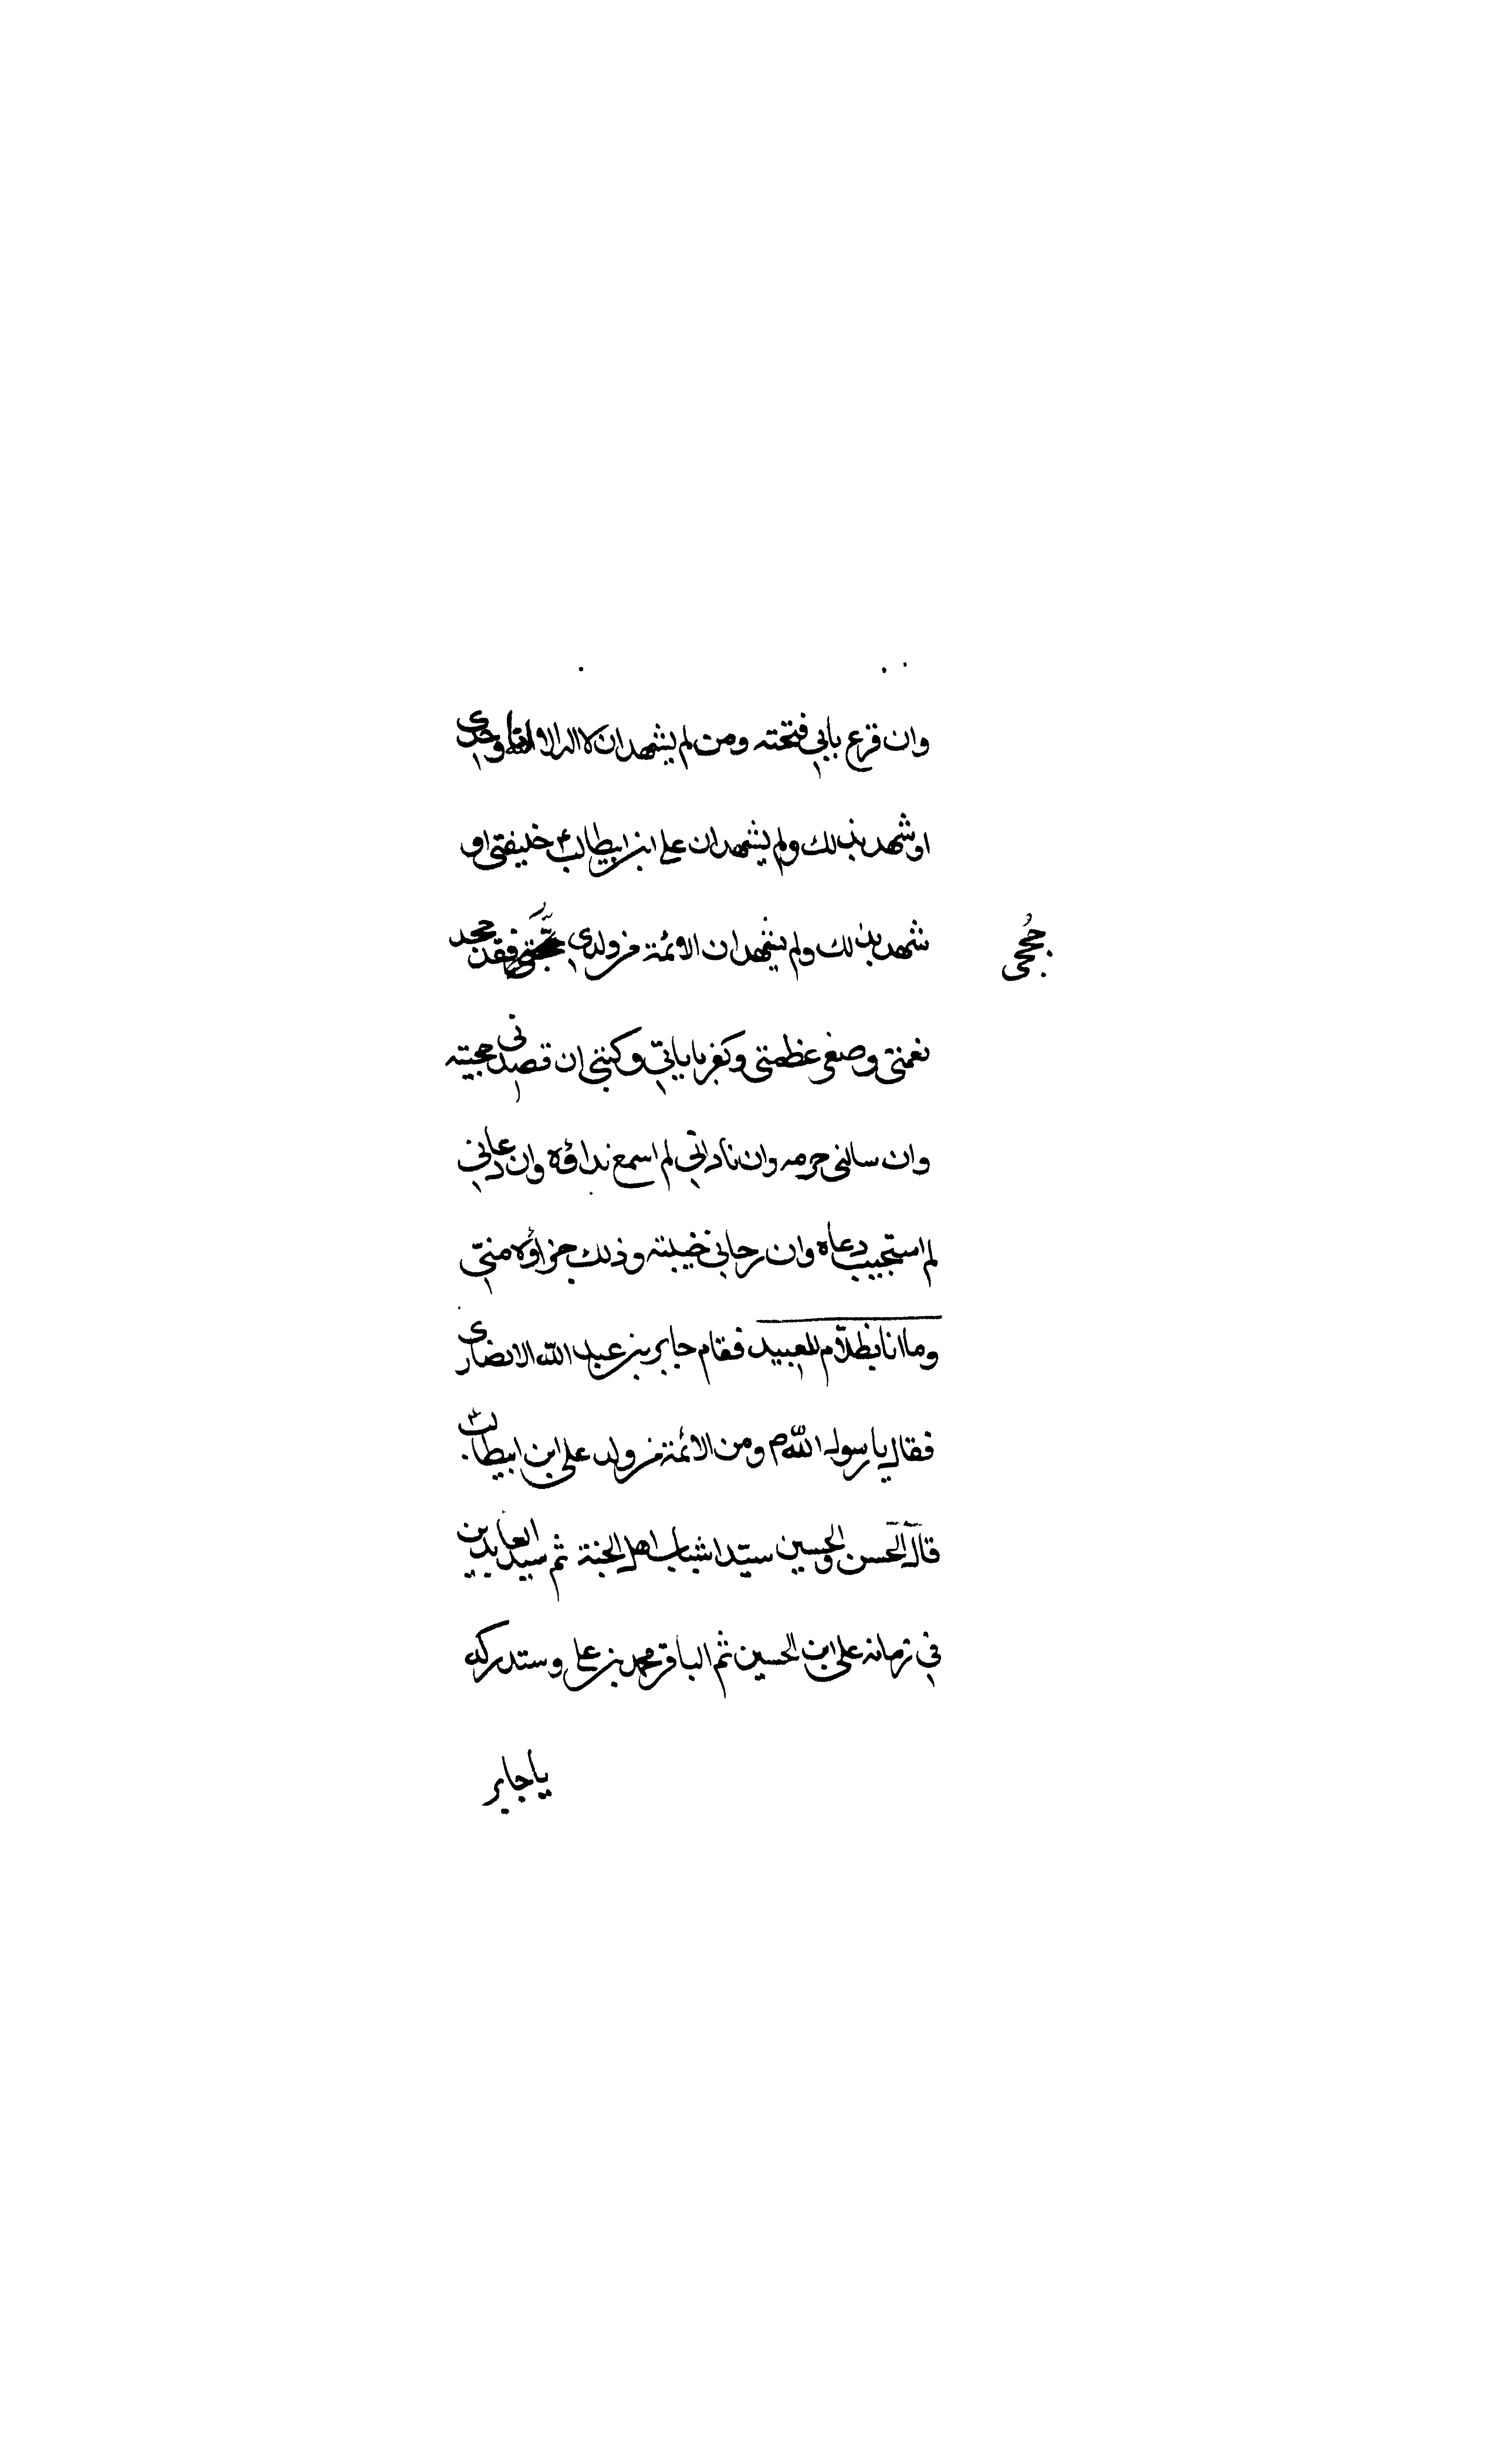 وان قرع بابي فتحته ومن لم يشهد ان لا اله الا انا وحدي
او شهد بذلك ولم يشهد ان علی ابن ابیطالب ع خليفتي او
شهد بذلك ولم يشهد ان الائمة من ولدي حججی فقد جحد
حججی
نعمتي وصغر عظمتي وكفر باياتي وكتبي ان قصدنی حجبته
وان سالنی حرمته وان ناداني لم اسمع نداؤه وان دعاني
لم استجيب دعاه وان رجاني خيبته وذلك جزاؤه منّي
وما انا بظلّام للعبيد فقام جابر بن عبد اللّه الانصاری
فقال يا رسول اللّه ص ومن الائمة من ولد علی ابن ابیطالب ع
قال الحسن والحسين سيّدا شباب اهل الجنة ثم سيد العابدين
في زمانه علی ابن الحسين ثم الباقر محمد بن علی وستدركه
يا جابر